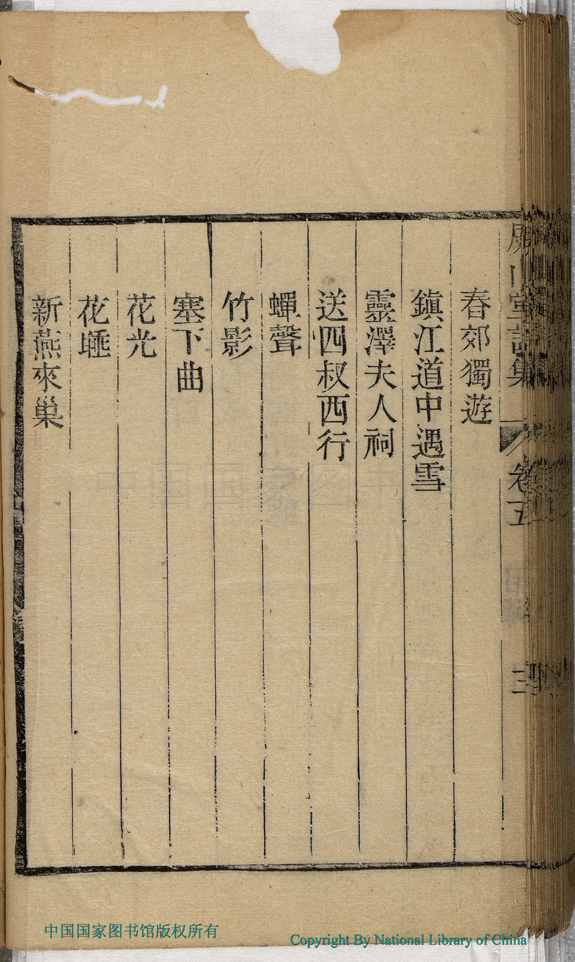 春郊獨遊
鎮江道中遇雪
靈澤夫人祠
送四叔西行
蟬聲
竹影
塞下曲
花光
花睡
新燕來巢
卷五
三
中国国家图书馆版权所有
Copyright By National Library of China